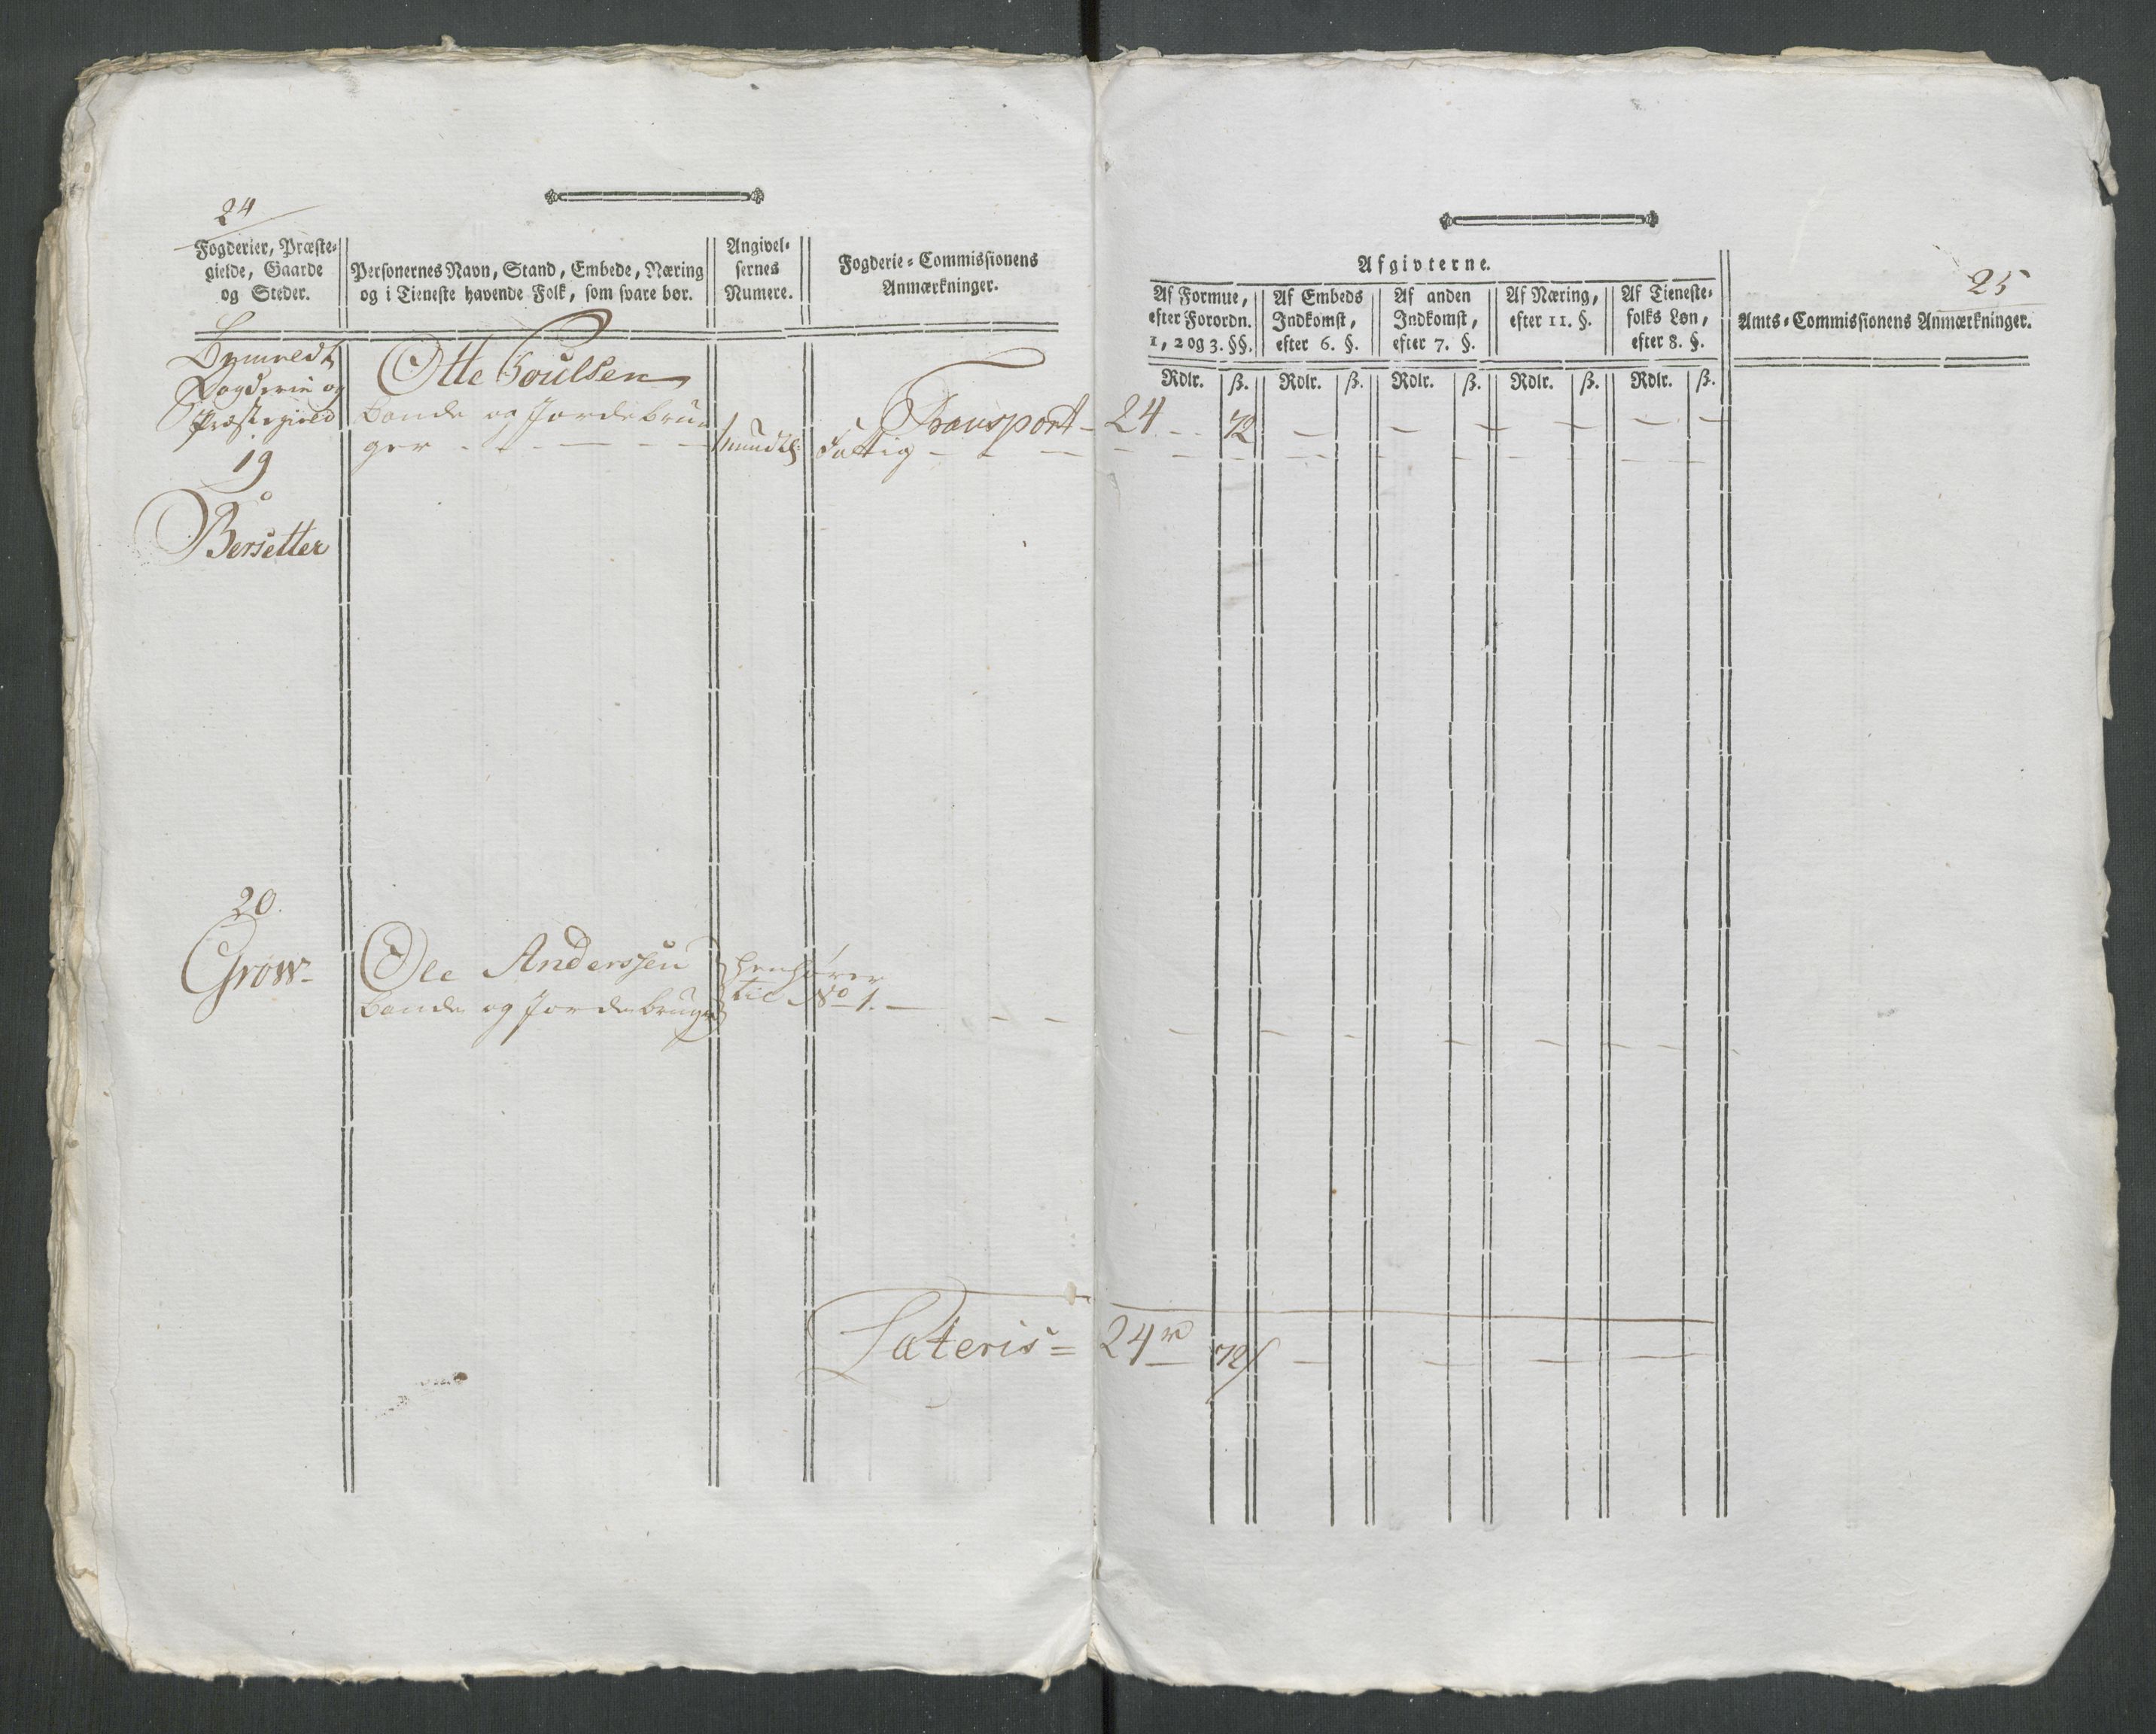 24
Fogderier, Præste-
gielde, Gaarde
og Steder.
Personernes Navn, Stand, Embede, Næring
og i Tieneste havende Folk, som svare bør.
Angivel-
sernes
Numere.
Fogderie-Commissionens
Anmærkninger.
Fogderie og
Præstegield
19
Bersetter
Otte Poulsen
bonde og Jordebru-
ger
mundtl:
Transport
Fattig
20.
Grow
Ole Anderssen
bonde og Jordebruger
henhører
til No 1.
Lateris
25
Afgivterne.
Af Formue,
efter Forordn.
1, 2 og 3. §§.
Af Embeds
Indkomst,
efter 6. §.
Af anden
Indkomst,
efter 7. §.
Af Næring,
efter 11. §.
Af Tieneste-
folks Løn,
efter 8. §.
Amts-Commissionens Anmærkninger.
Rdlr. ß. Rdlr. ß. Rdlr. ß. Rdlr. ß. Rdlr. ß.
24 72
24 72